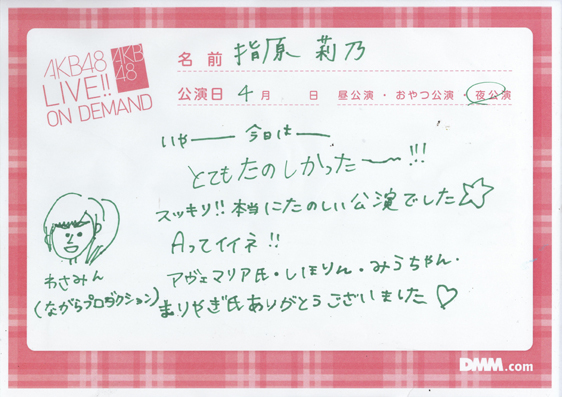 AKB48
LIVE!!
ON DEMAND
AKB
48
名前 指原 莉乃
公演日 4月 日 昼公演・おやつ公演・夜公演
いやー 今日はー
とてもたのしかった〜!!!
スッキリ!!本当にたのしい公演でした☆
Aってイイネ!!
アヴェマリア氏・しほりん・みうちゃん・
まりやぎ氏ありがとうございました♡
わさみん
(ながらプロダクション)
DMM.com